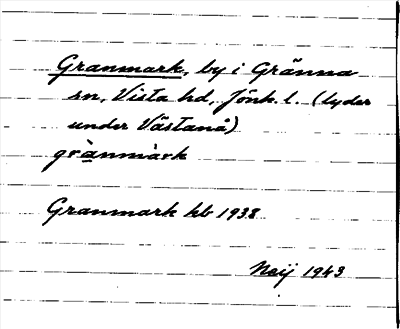 Granmark, by i Gränna
sn, Vista hd, Jönk. l. (lyder
under Västanå)
grànmàrk
Granmark kb 1938
Neij 1943